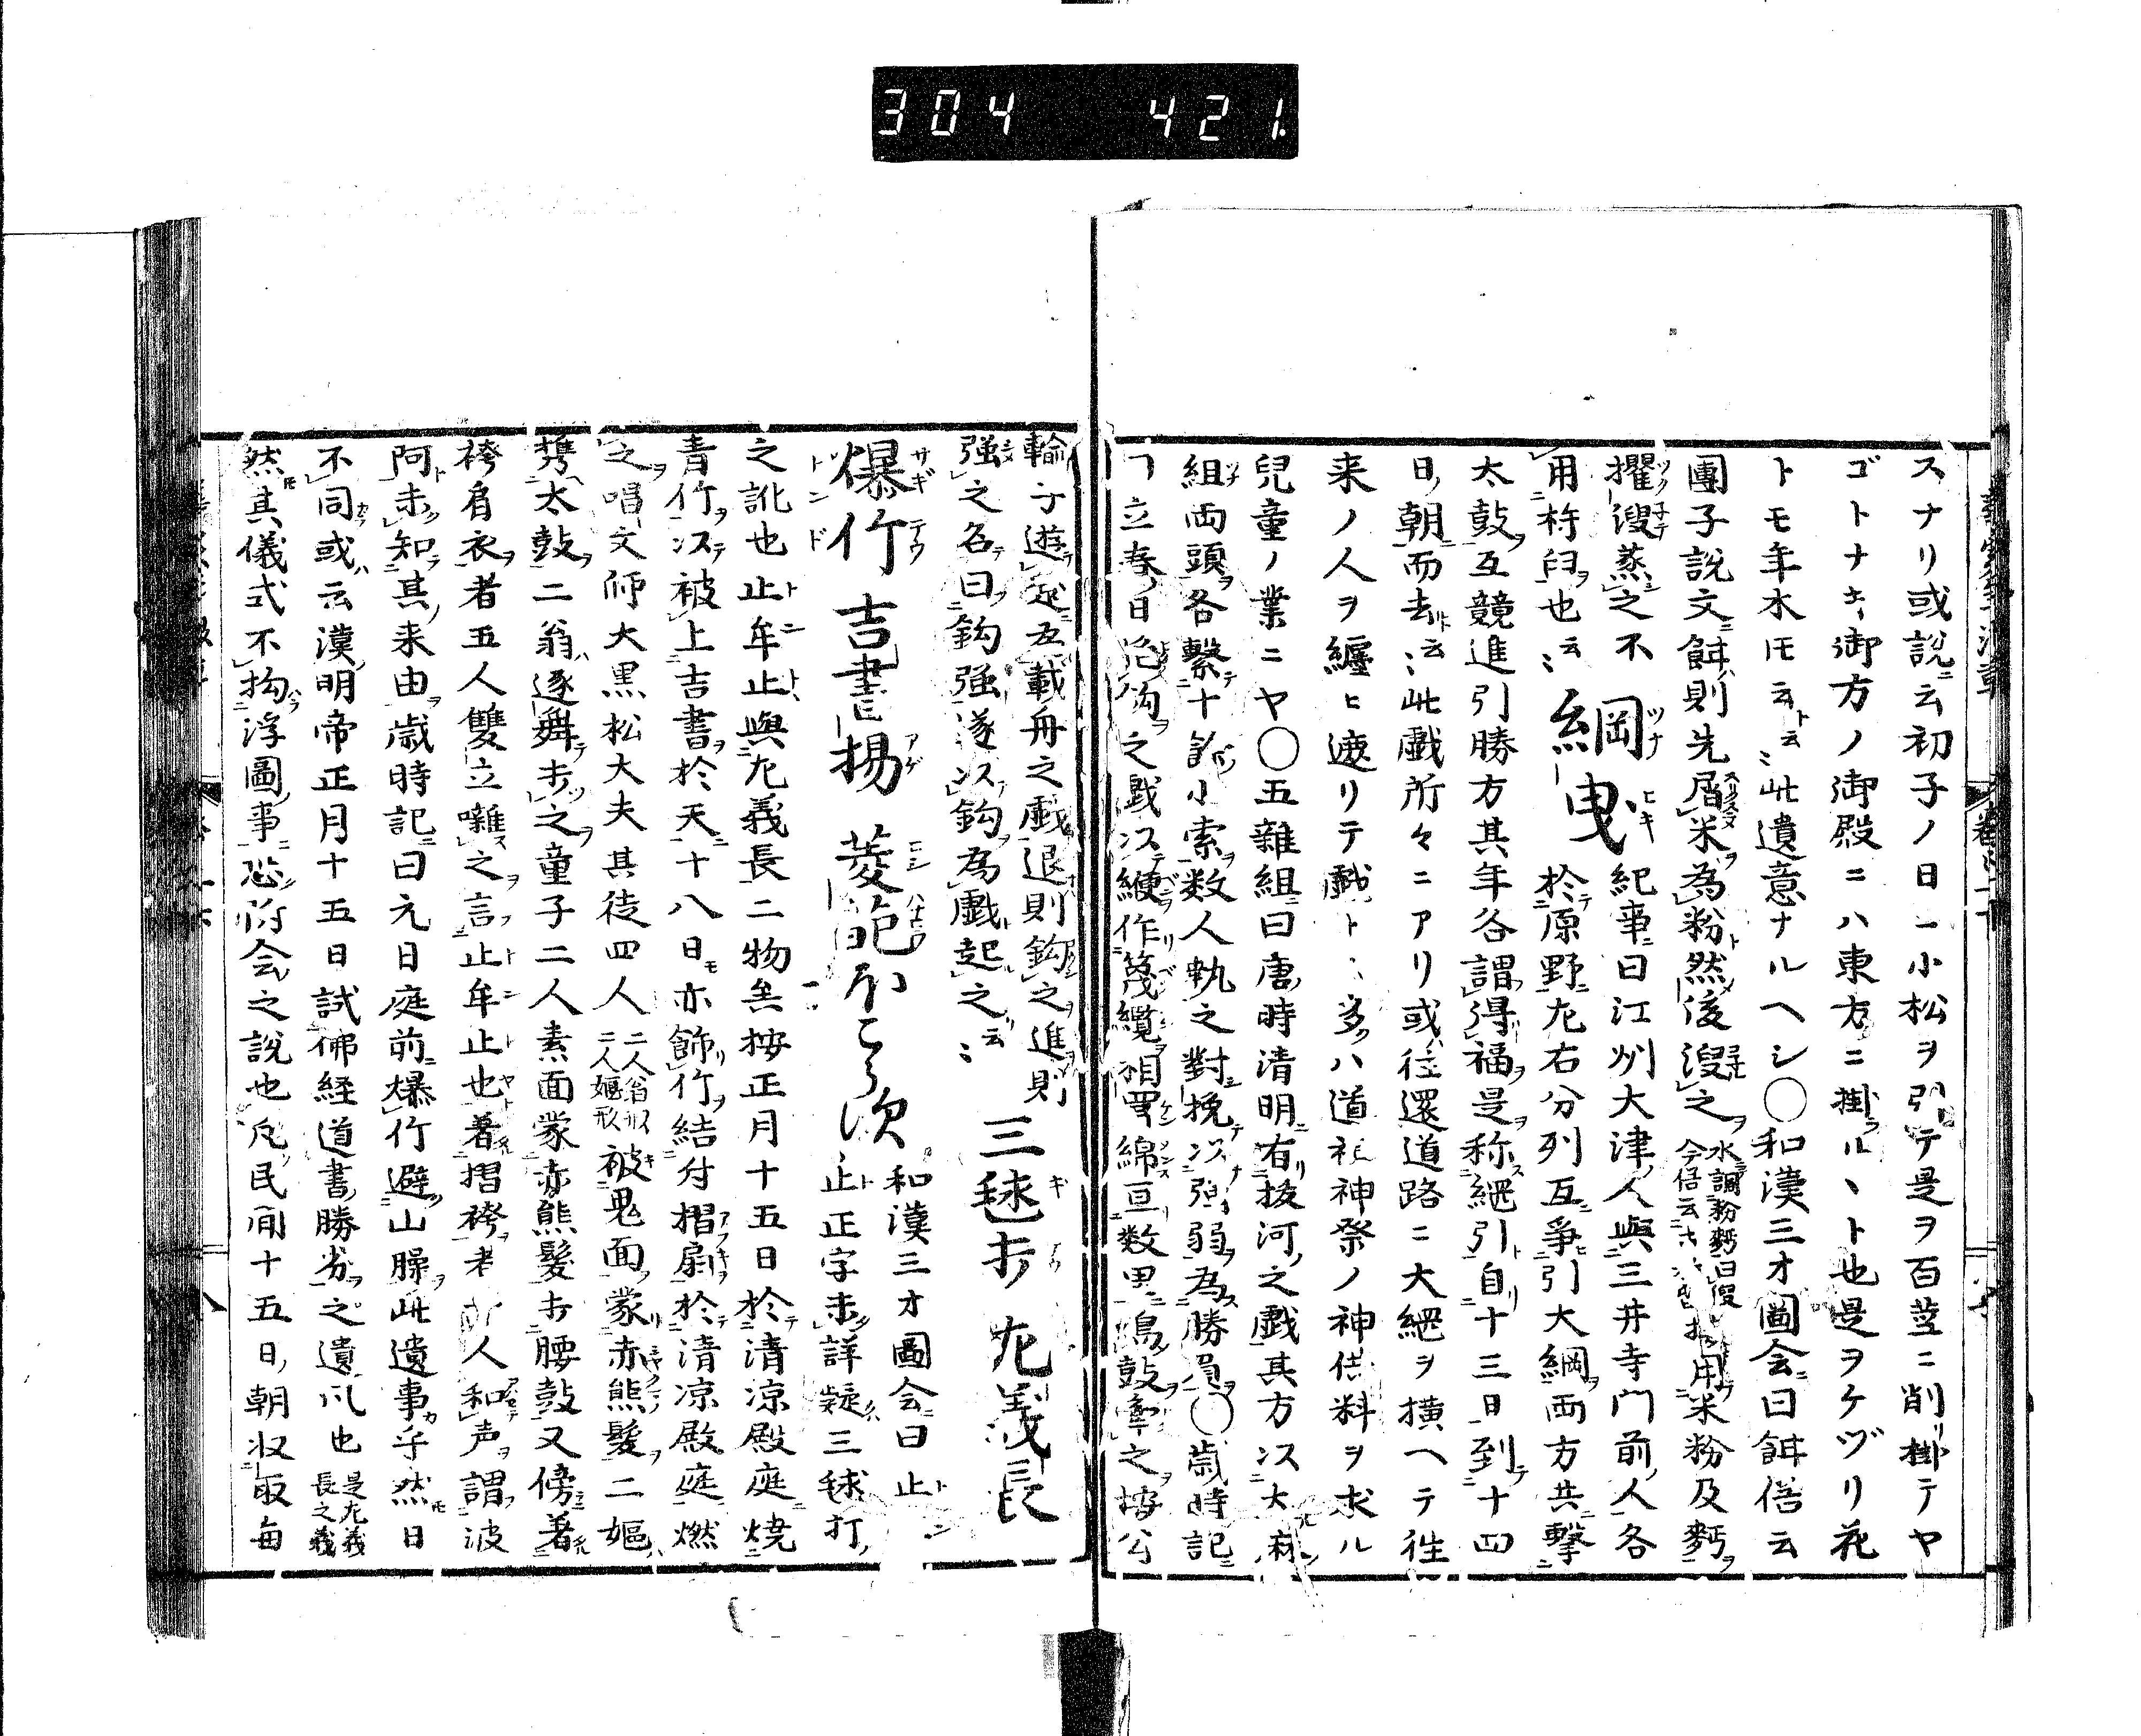 304 421.
スナリ或説云初子ノ日ニ小松ヲ引テ是ヲ百莖ニ削リ掛テヤ
ゴトナキ御方ノ御殿ニハ東方ニ掛ラルヽト也是ヲケヅリ花
トモ年木トモ云云此遺意ナルヘシ○和漢三才圖会曰餌俗云
團子説文餌則先屑米為粉然後溲之 水調粉麪曰溲 今俗云 用米粉及麪
擢溲蒸之不用杵臼也云〻
綱曳 ツナヒキ
紀事曰江州大津人與三井寺門前人各
於原野左右分列互爭引大綱両方共撃
太鼓互競進引勝方其年各謂得福是称綱引自十三日到十四
日朝而去云〻此戯所々ニアリ或往還道路ニ大綱ヲ横ヘテ徃
来ノ人ヲ纏ヒ遮リテ戯ト 多ハ道祖神祭ノ神供料ヲ求ル
兒童ノ業ニヤ○五雜組曰唐時清明有抜河之戯其方以大麻
組両頭各繋十許小索数人執之對挽以強弱為勝負○歳時記
曰立春日 鈎之戯以緶作篾纜相罥綿亘数里鳴鼓牽之按公
輸子遊 載舟之戯退則鈎之進則
強之名曰鈎強遂以鈎為戯起之云〻
三毬打 左義長
爆竹 サギテウ トンド
吉書揚 アゲ
菱葩
和漢三才圖会曰止
止正字未詳疑三毬打
之訛也止牟止與左義長二物矣按正月十五日於清涼殿庭焼
青竹以被上吉書於天十八日亦飾竹結付摺扇於清凉殿庭燃
之唱文師大黒松大夫其徒四人 二人翁形 二人嫗形 被鬼面蒙赤熊髪二嫗
携太鼓二翁逐舞打之童子二人素面蒙赤熊髪打腰鼓又傍著
袴肩衣者五人雙立囃之言止牟止也著摺袴者 人和声謂波
阿未知其来由歳時記曰元日庭前爆竹避山臊此遺事乎然日
不同或云漢明帝正月十五日試佛経道書勝劣之遺風也 是左義 長之義
然其儀式不拘浮圖事恐附会之説也凡民间十五日朝収取毎